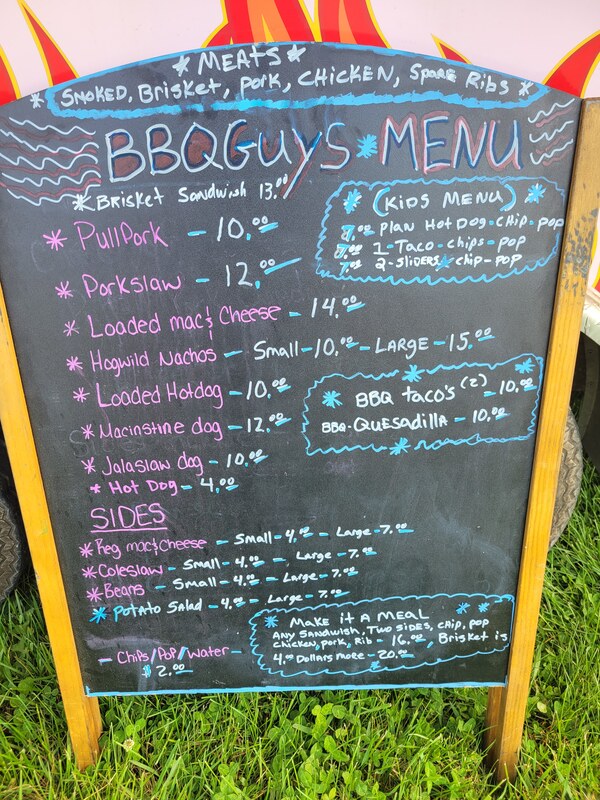 *MEATS*
*SMOKED, BrisKET, PorK, CHICKEN, Spare Ribs*
BBQGuys*MENU
*Brisket Sandwish 13.00
* PullPork - 10.00
* Porkslaw - 12.00
* Loaded mac & Cheese - 14.00
* Hogwild Nachos - Small-10.00 - LARGE-15.00
* Loaded Hotdog - 10.00
* Macinstine dog - 12.00
* Jalaslaw dog - 10.00
* Hot Dog - 4.00
* (KIDS MENU) *
7.00 PLAN HOT DOG-CHIP-POP
7.00 1-TACO-chips-pop
7.00 2-SLIDERS*chip-pop
* BBQ taco's (2) - 10.00
BBQ-QUESADILLA - 10.00
SIDES
* Reg mac & Cheese - Small-4.00 - Large-7.00
* Coleslaw - Small-4.00 - Large-7.00
* Beans - Small-4.00 - Large-7.00
* POTATO SALAD - 4.00 - Large-7.00
- Chips/Pop/Water -
$2.00
* MAKE IT A MEAL **
ANY SANDWISH, TWO SIDES, CHIP, POP
CHICKEN, PORK, RIB - 16.00, BRISKET is
4.00 DOLLARS MORE - 20.00